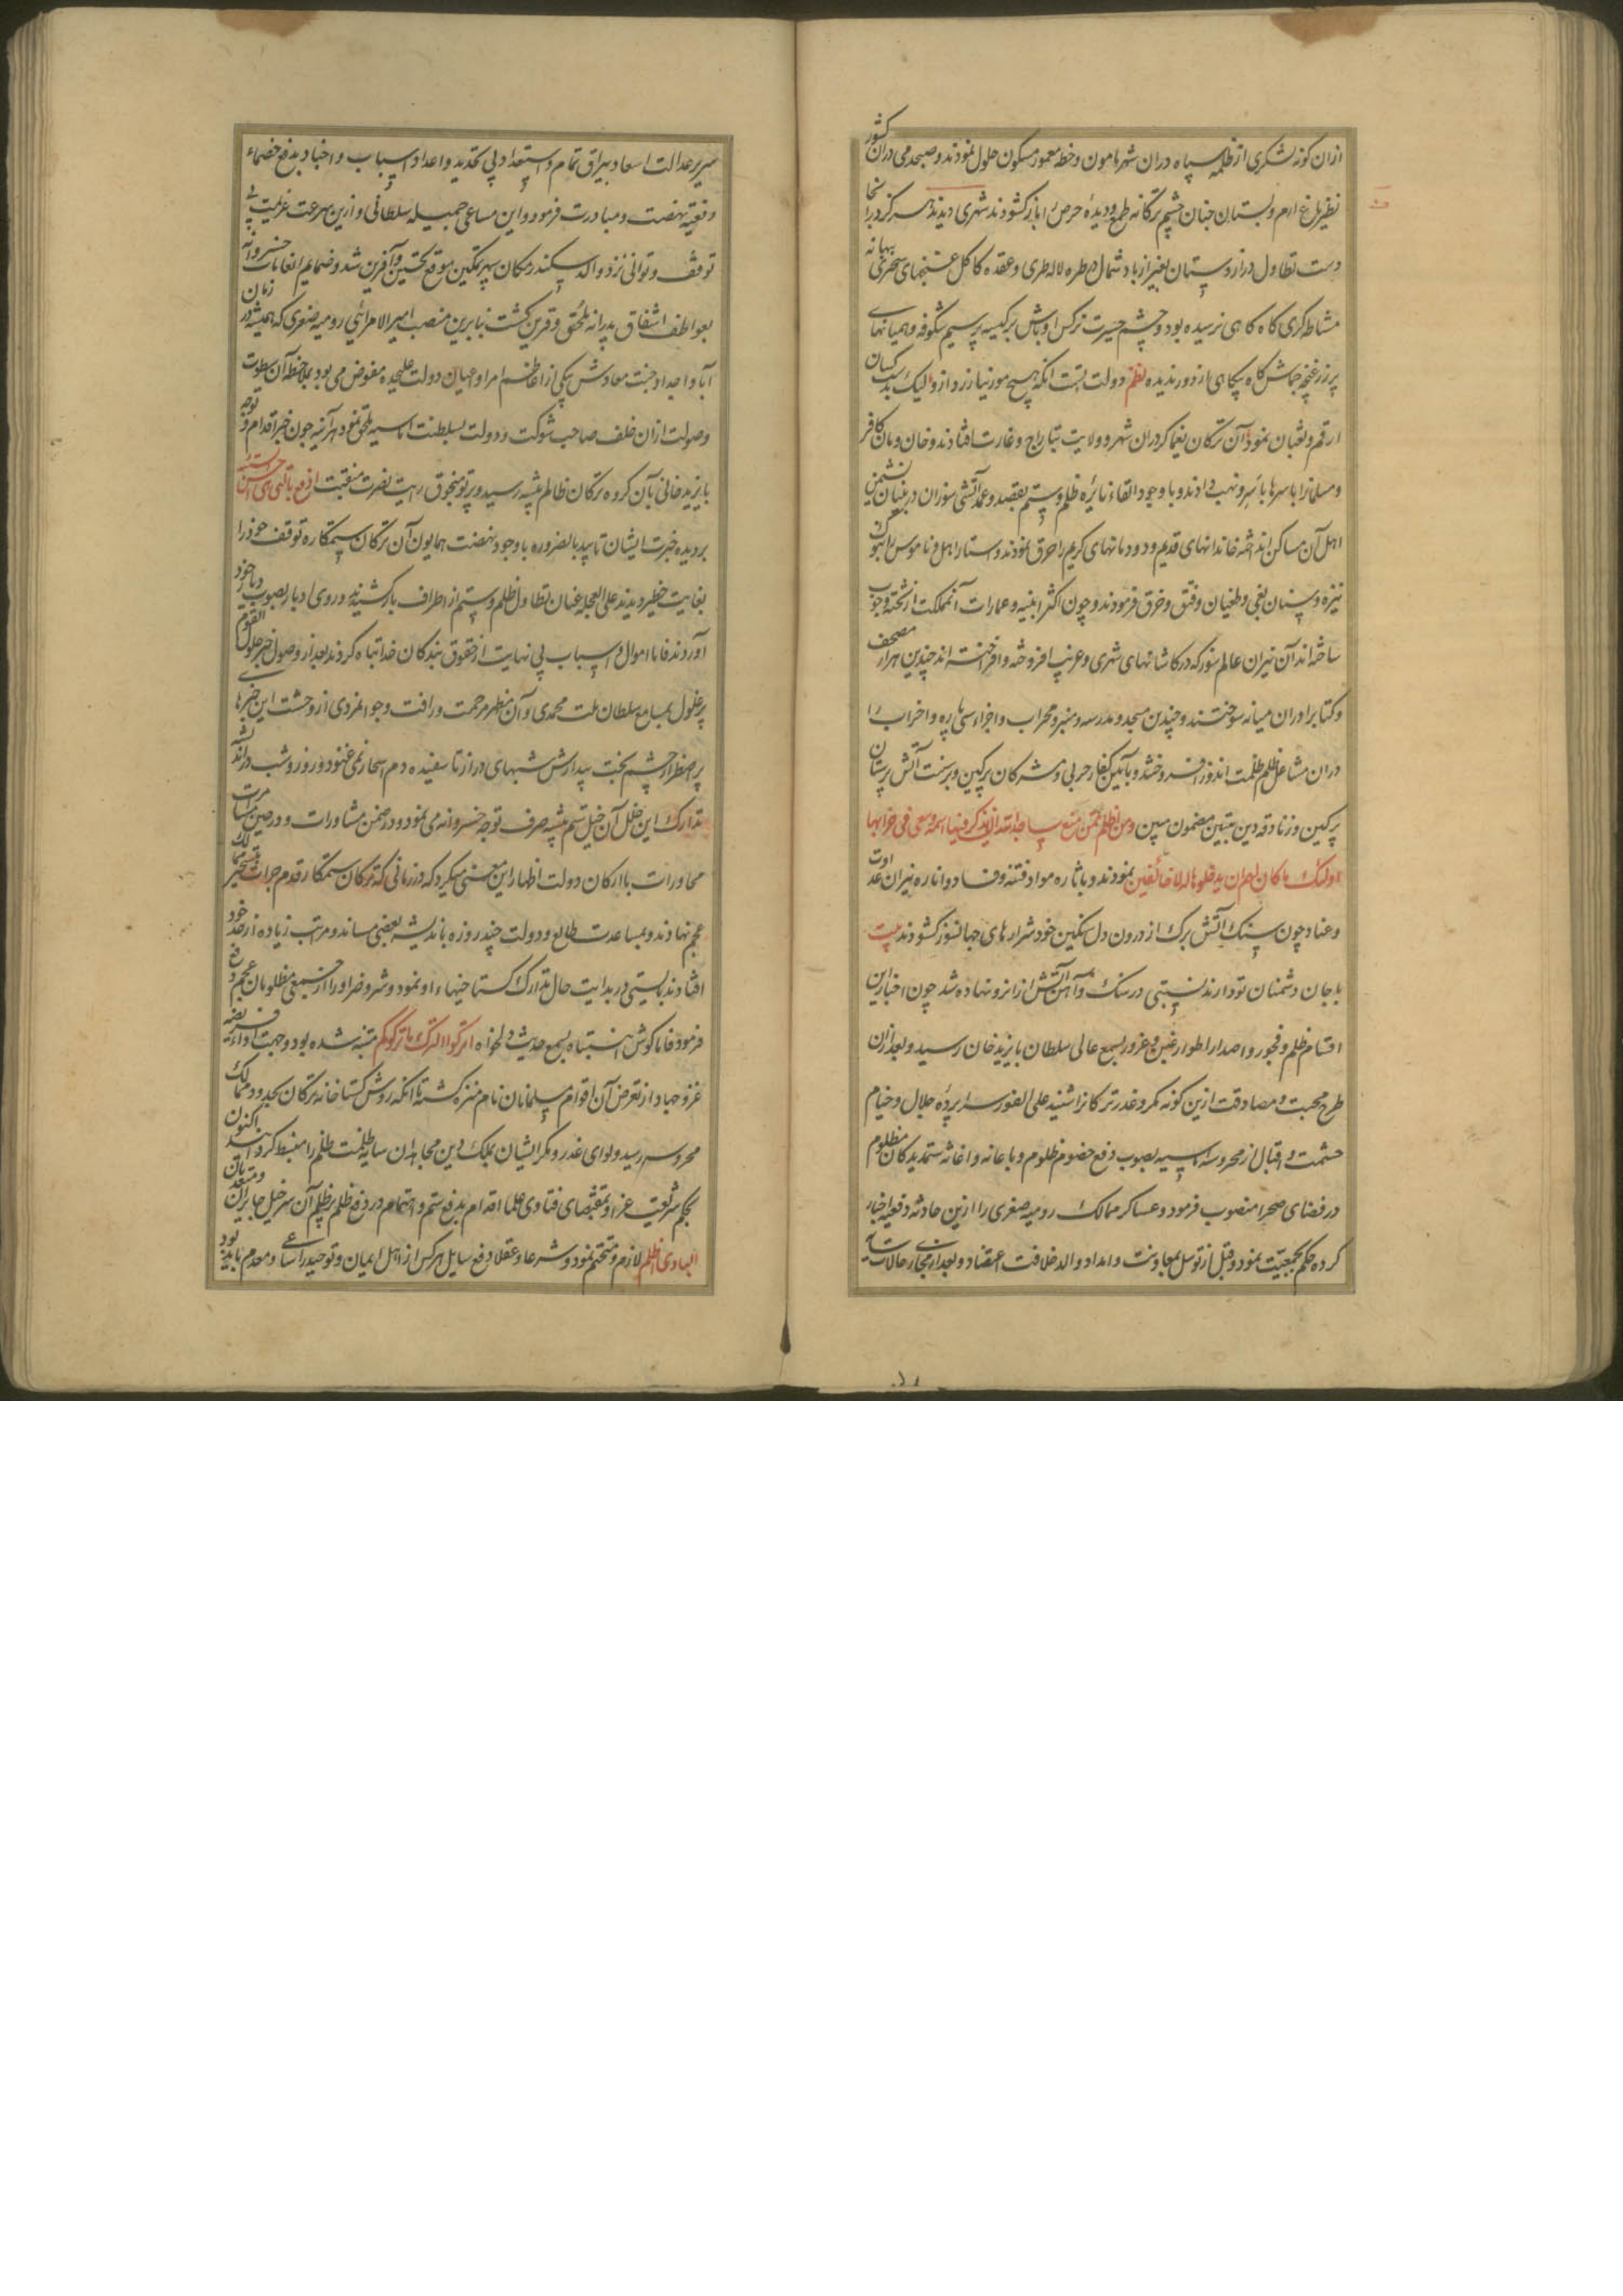 ازان کونه لشکری از ظلمه سپاه دران شهر هامون و خطه معمور مسکون حلول نمودند و صبحدمی دران کشور
نظیر باغ ارم و بستان جنان چشم ترکانه طمع و دیده حرص را باز کشودند شهری دیدند هرکز در انجا
دست تطاول دراز دستان بغیر از باد شمال بطره لاله طری و عقده کاکل غنچهای سحری بهانه
مشاطه کری کاه کاهی نرسیده بود و چشم حیرت نرکس اوباش بر کیسه پر سیم شکوفه و همیانهای
پر زر غنچه جماش کاه بیکاهی از دور ندیده نظم دولت آنست انکه هیچ مور نیازرد ازو لیک بد کیسان
ارقم و ثعبان نمود آن ترکان یغما کر دران شهر و ولایت بتاراج و غارت افتادند و خان و مان کافر
و مسلمانرا باسرها باسر و نهب دادند و با وجود القاء نایره ظلم و ستم بقصد و عمد آتشی سوزان در بنیان نشیمن
اهل آن مساکن انداخته خاندانهای قدیم و دودمانهای کریم را حرق نمودند و ستار اهل و ناموس را بنوک
نیزه و سنان بغی و طغیان و فتق و خرق فرمودند و چون اکثر ابنیه و عمارات آنمملکت از تخته و چوب
ساخته‌اند آن نیران عالم سوز که در کاشانهای شهری و غریب افروخته و افراخته‌اند چندین هزار مصحف
و کتابرا دران میانه سوختند و چندین مسجد و مدرسه و منبر و محراب و اجزاء سی پاره و احزاب را
دران مشاعل ظلم ظلمت اندوز افروختند و بآیین کفار حربی و مشرکان پرکین و برسنت آتش پرستان
پرکین و زنادقه دین متبین مضمون مبین ومن اظلم ممن منع مساجد الله ان یذکر فیها اسمه وسعی فی خرابها
اولئک ما کان لهم ان یدخلوها الا خائفین نمودند و باثاره مواد فتنه و فساد و اناره نیران عداوت
و عناد چون سنک آتش برک از درون دل سنکین خود شرارهای جهانسوز کشودند بیت
با جان دشمنان تو دارند نسبتی در سنک و آهن آتش ازانرو نهاده شد چون اخبار این
اقسام ظلم و فجور و اصدار اطوار غبن و غرور بسمع عالی سلطان بایزید خان رسید و بعد ازان
طرح محبت و مصادقت ازین کونه مکر و غدر ترکانرا شنید علی الفور سراپرده جلال و خیام
حشمت و اقبال از محروسه اماسیه بصوب دفع خصوم ظلوم و باعانه و اغاثه ستمدیدکان مظلوم
در فضای صحرا منصوب فرمود و عساکر ممالک رومیه صغری را ازین حادثه دفعیه اخبار
کرده حکم بجمعیت نمود و قبل از توسل بمعاونت و امداد والد خلافت اعتضاد و بعد از مجاری حالات
سریر عدالت اسعاد بیراق تمام و استعداد پی تجدید و اعداد اسباب و اجناد بدفع خصماء
دفعیه نهضت و مبادرت فرمود و این مساعی جمیله سلطانی و ازین سرعت عزیمت بی
توقف و توانی نزد والد سکندر مکان سپهر تمکین موقع تحسین و آفرین شد و ضمایم انعامات خسروانه
بعواطف اشفاق پدرانه ملحق و قرین کشت بنابرین منصب امیر الامرائی رومیه صغری که همیشه در زمان
آبا و اجداد جنت معادش بیکی از اعاظم امرا و اعیان دولت علیحده مفوض می بود بملاحظه آن سطوت
و صولت ازان خلف صاحب شوکت و دولت بسلطنت اماسیه ملحق نمود هرآینه چون خبر اقدام و توجه
بایزید خانی بآن کروه ترکان ظالم پیشه رسید و پرتو سنجوق رایت نصرت منقبت ادفع بالتی هی احسن السیئه
بر دیده خبرت ایشان تابید بالضروره با وجود نهضت همایون آن ترکان ستمکاره توقف خود را
بغایت خطیر دیدند علی العجله عنان تطاول ظلم و ستم از اطراف بازکشیدند و روی ادبار بصوب دیار خود
آوردند فاما اموال و اسباب بی نهایت از حقوق بندکان خدا تباه کردند بعد از وصول خبر حلول القوم
پر غلول بمسامع سلطان ملت محمدی و آن مظهر مرحمت و رافت و جوانمردی از وحشت این خبرهای
پر اضطرار چشم بخت بیدارش شبهای دراز تا سفیده دم اسحار نمی غنود و روز و شب در اندیشه
تدارک این خلل آن خیل ستم پیشه صرف توجه خسروانه می نمود و در ضمن مشاورات و در حین مسامرات
محاورات با ارکان دولت اظهار این معنی میکرد که در زمانی که ترکان ستمکار قدم جرات بتسخیر ممالک
عجم نهادند و بمساعدت طالع و دولت چند روزه باندیشه بعضی مساند و مراتب زیاده از حد خود
افتادند بایستی در بدایت حال تدارک کستاخیهاء او نمود و شر و ضر او را از جمیع مظلومان عجم دفع
فرمود فاما کوش انتباه بسمع حدیث دلخواه اترکوا الترک ما ترکوکم متنبه شده بود و جهت اداء فریضه
غزو جهاد از تعرض آن اقوام مسلمانان نام منزه کشته تا آنکه روش کستاخانه ترکان بحدود ممالک
محروسه رسید و لوای غدر و مکر ایشان بملک دین مجاهدان سایه ظلمت ظلم را منبسط کردانید اکنون
بحکم شریعت غرا و بمقتضای فتاوی علما اقدام بدفع ستم و اهتمام در دفع ظلم بر ظلم آن سرخیل جابران و متعدیان
البادی اظلم لازم و متحتم نمود و شرعا و عقلا دفع سایل هرکس از اهل ایمان و توحید را ساعی و مقدم باید بود